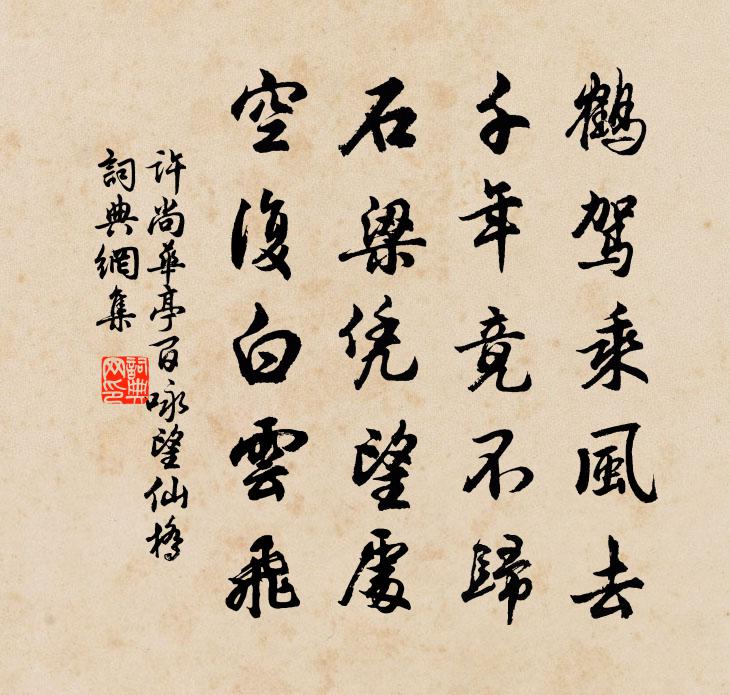 鶴駕乘風去
千年竟不歸
石梁凭望處
空復白雲飛
許尚華亭百咏望仙橋
詞典網集
詞典网印